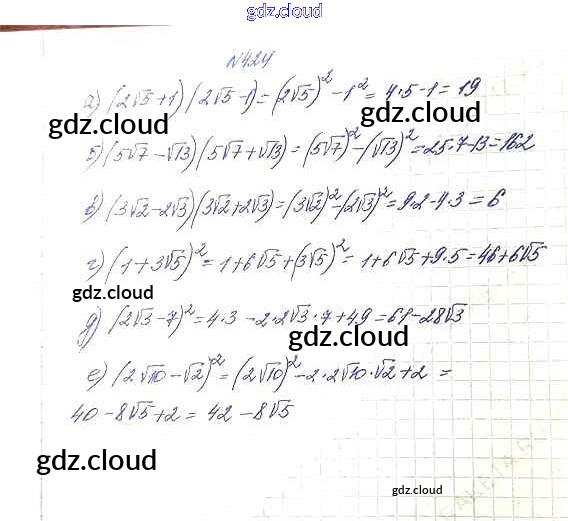 gdz.cloud
№424
а) (2√5+1)(2√5-1)=(2√5)²-1²=4·5-1=19
gdz.cloud
gdz.cloud
б) (5√7-√13)(5√7+√13)=(5√7)²-(√13)²=25·7-13=162
в) (3√2-2√3)(3√2+2√3)=(3√2)²-(2√3)²=9·2-4·3=6
gdz.cloud
г) (1+3√5)²=1+6√5+(3√5)²=1+6√5+9·5=46+6√5
gdz.cloud
д) (2√3-7)²=4·3-2·2√3·7+49=61-28√3
gdz.cloud
е) (2√10-√2)²=(2√10)²-2·2√10·√2+2=
40-8√5+2=42-8√5
gdz.cloud
gdz.cloud